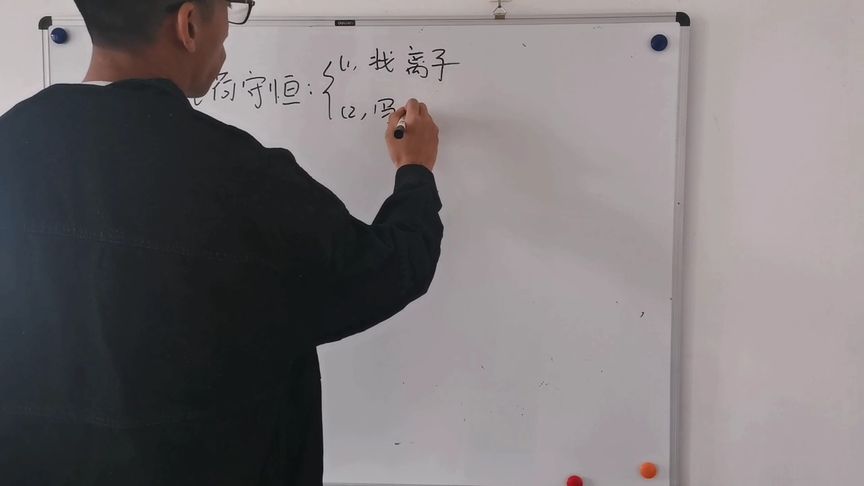 荷守恒:
(1, 找离子
(2, 写